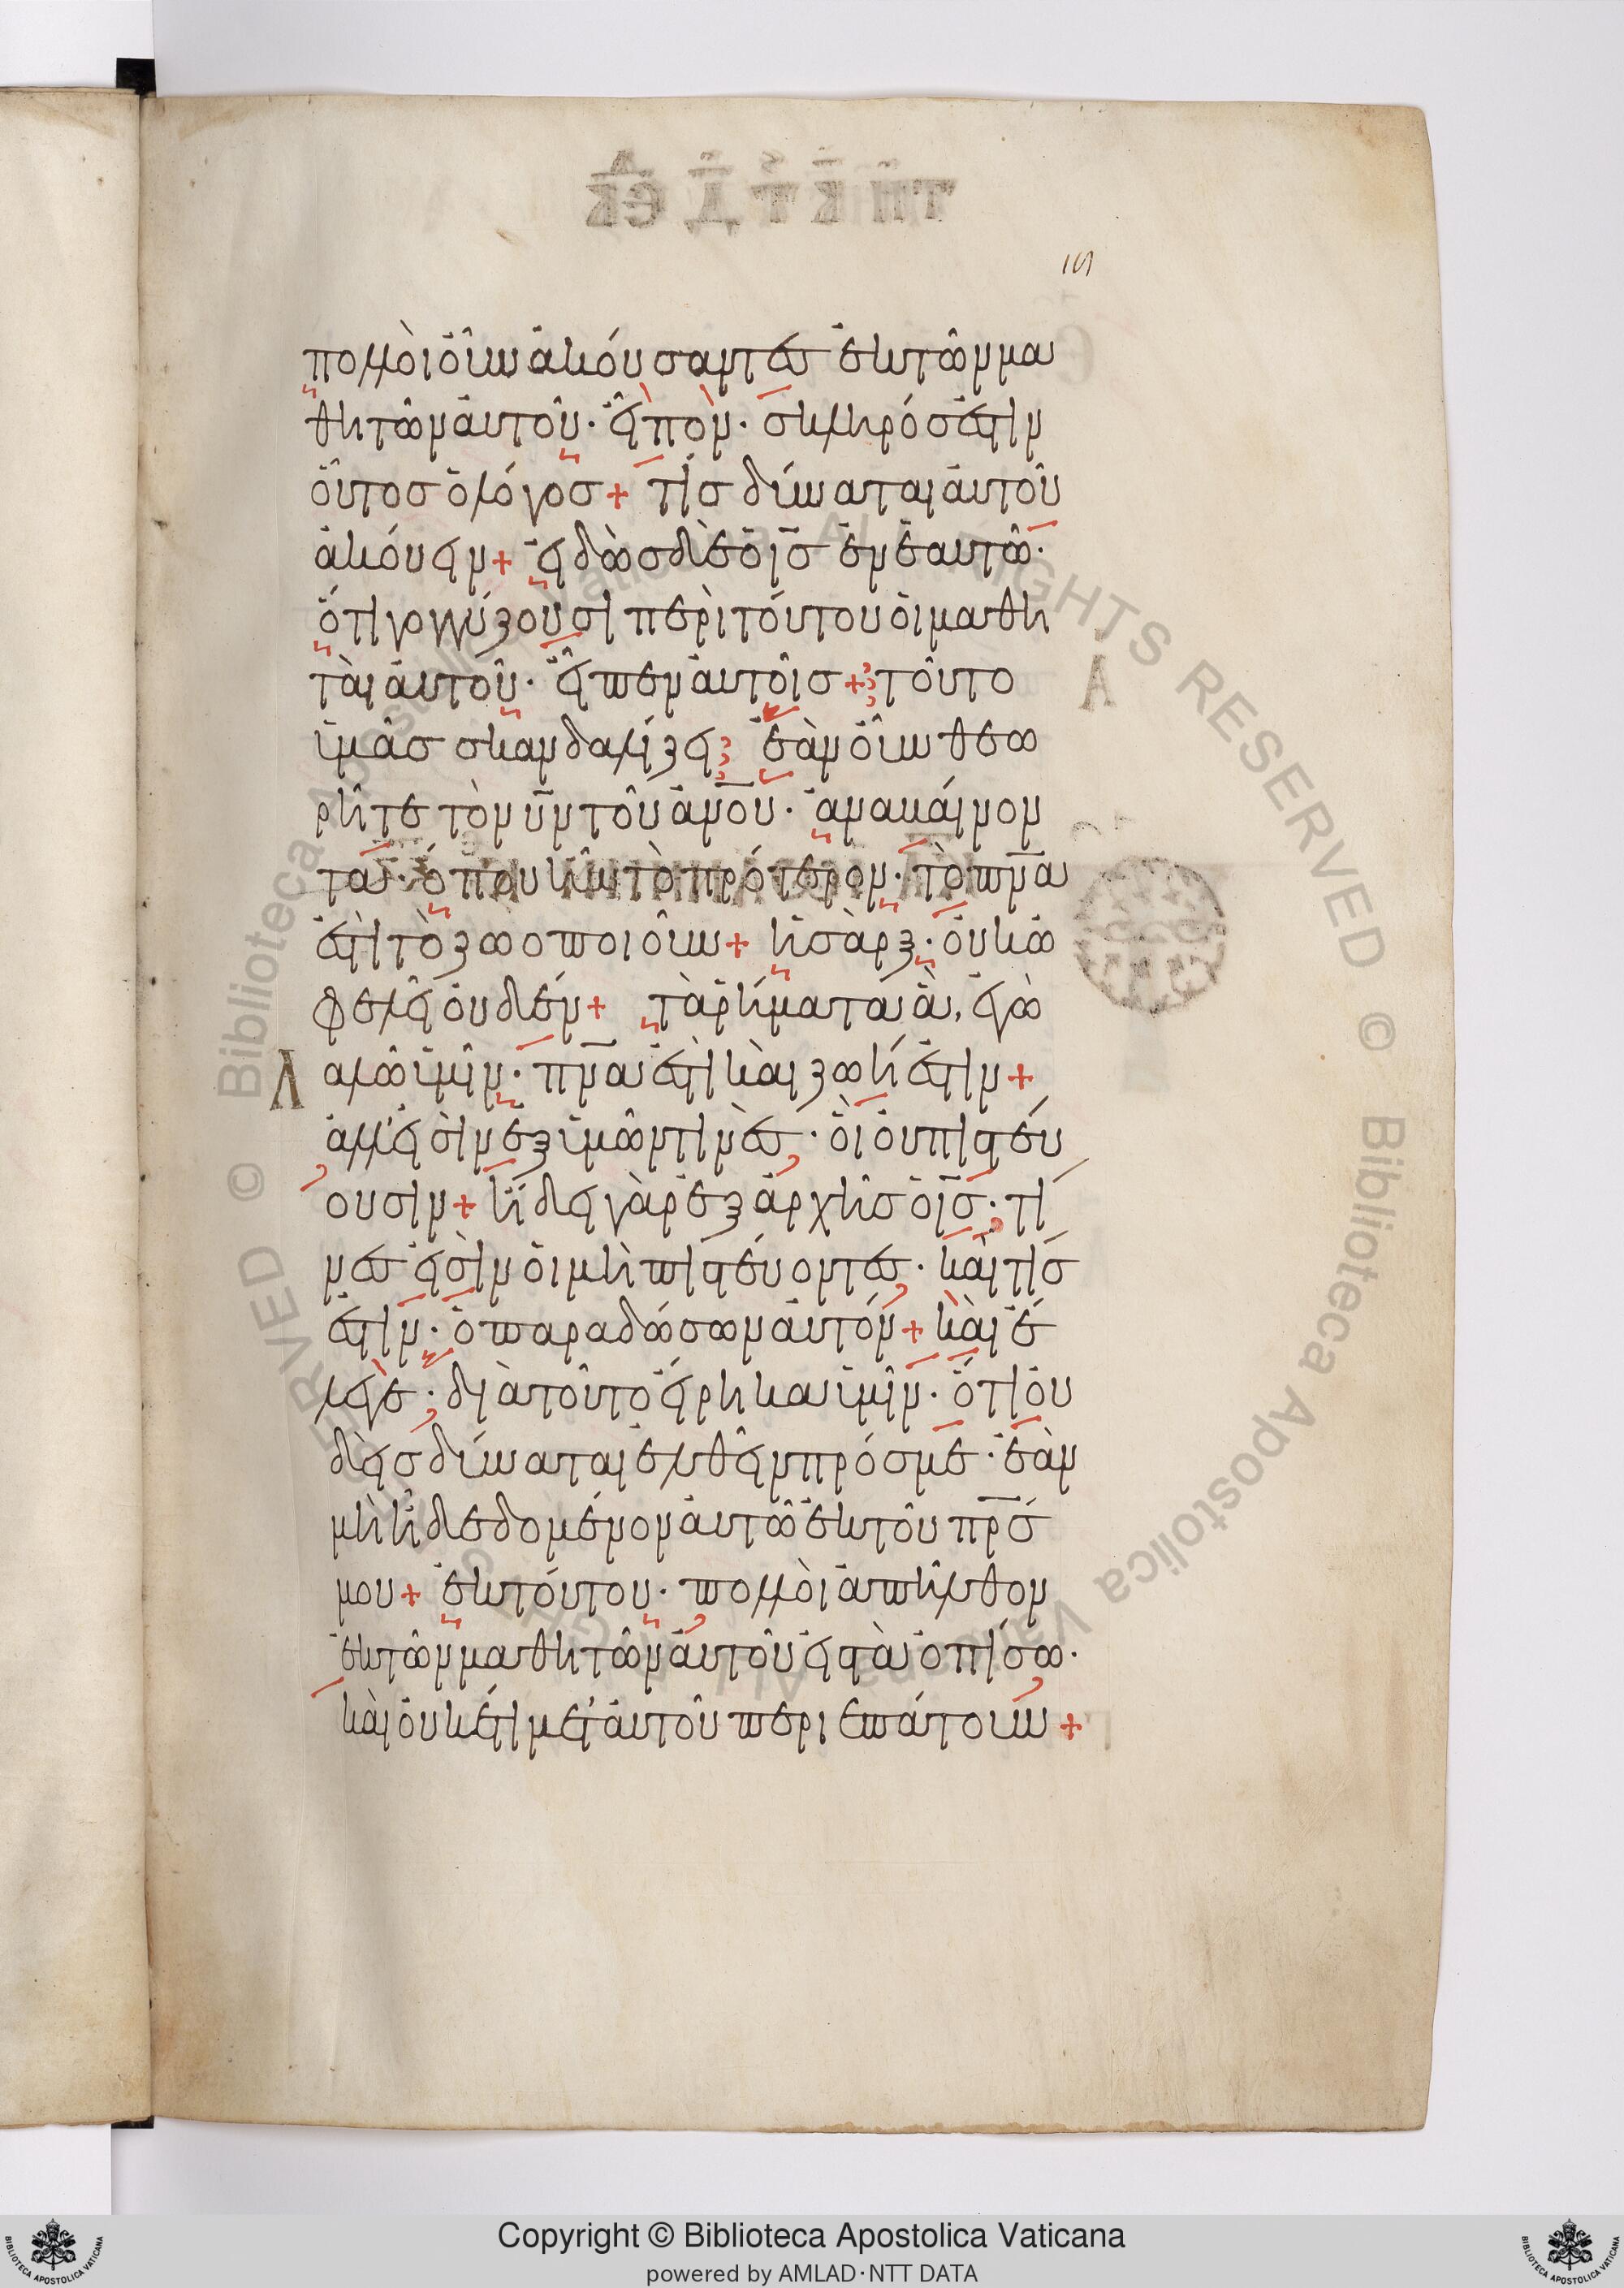 πολλοὶ οὖν ἀκούσαντες ἐκ τῶν μα
θητῶν αὐτοῦ· εἶπον· σκληρός ἐστιν
οὗτος ὁ λόγος + τίς δύναται αὐτοῦ
ἀκούειν + εἰδὼς δὲ ὁ ις ἐν ἑαυτῶ·
ὅτι γογγύζουσι περὶ τούτου οἱ μαθη
ταὶ αὐτοῦ· εἶπεν αὐτοῖς + τοῦτο
ὑμᾶς σκανδαλίζει; ἐὰν οὖν θεω
ρῆτε τὸν υν τοῦ ανου· ἀναβαίνον
τα· ὅπου ἦν τὸ πρότερον· τὸ πνα
ἐστὶ τὸ ζωοποιοῦν + ἡ σὰρξ· οὐκ ὠ
φελεῖ οὐδέν + τὰ ῥήματα ἃ, ἐγὼ
λαλῶ ὑμῖν· πνα ἐστὶ καὶ ζωή ἐστιν +
ἀλλ' εἰσὶν ἐξ ὑμῶν τινὲς· οἳ οὐ πιστεύ
ουσιν + ἤδει γὰρ ἐξ ἀρχῆς ὁ ις· τί
νες εἰσὶν οἱ μὴ πιστεύοντες· καὶ τίς
ἐστιν· ὁ παραδώσων αὐτόν + καὶ ἔ
λεγε· διὰ τοῦτο εἴρηκα ὑμῖν· ὅτι οὐ
δεὶς δύναται ἐλθεῖν πρός με· ἐὰν
μὴ ἦ δεδομένον αὐτῶ ἐκ τοῦ πρς
μου + ἐκ τούτου· πολλοὶ ἀπῆλθον
ἐκ τῶν μαθητῶν αὐτοῦ εἰς τὰ ὀπίσω·
καὶ οὐκέτι μετ' αὐτοῦ περιεπάτουν +
Copyright © Biblioteca Apostolica Vaticana
powered by AMLAD·NTT DATA